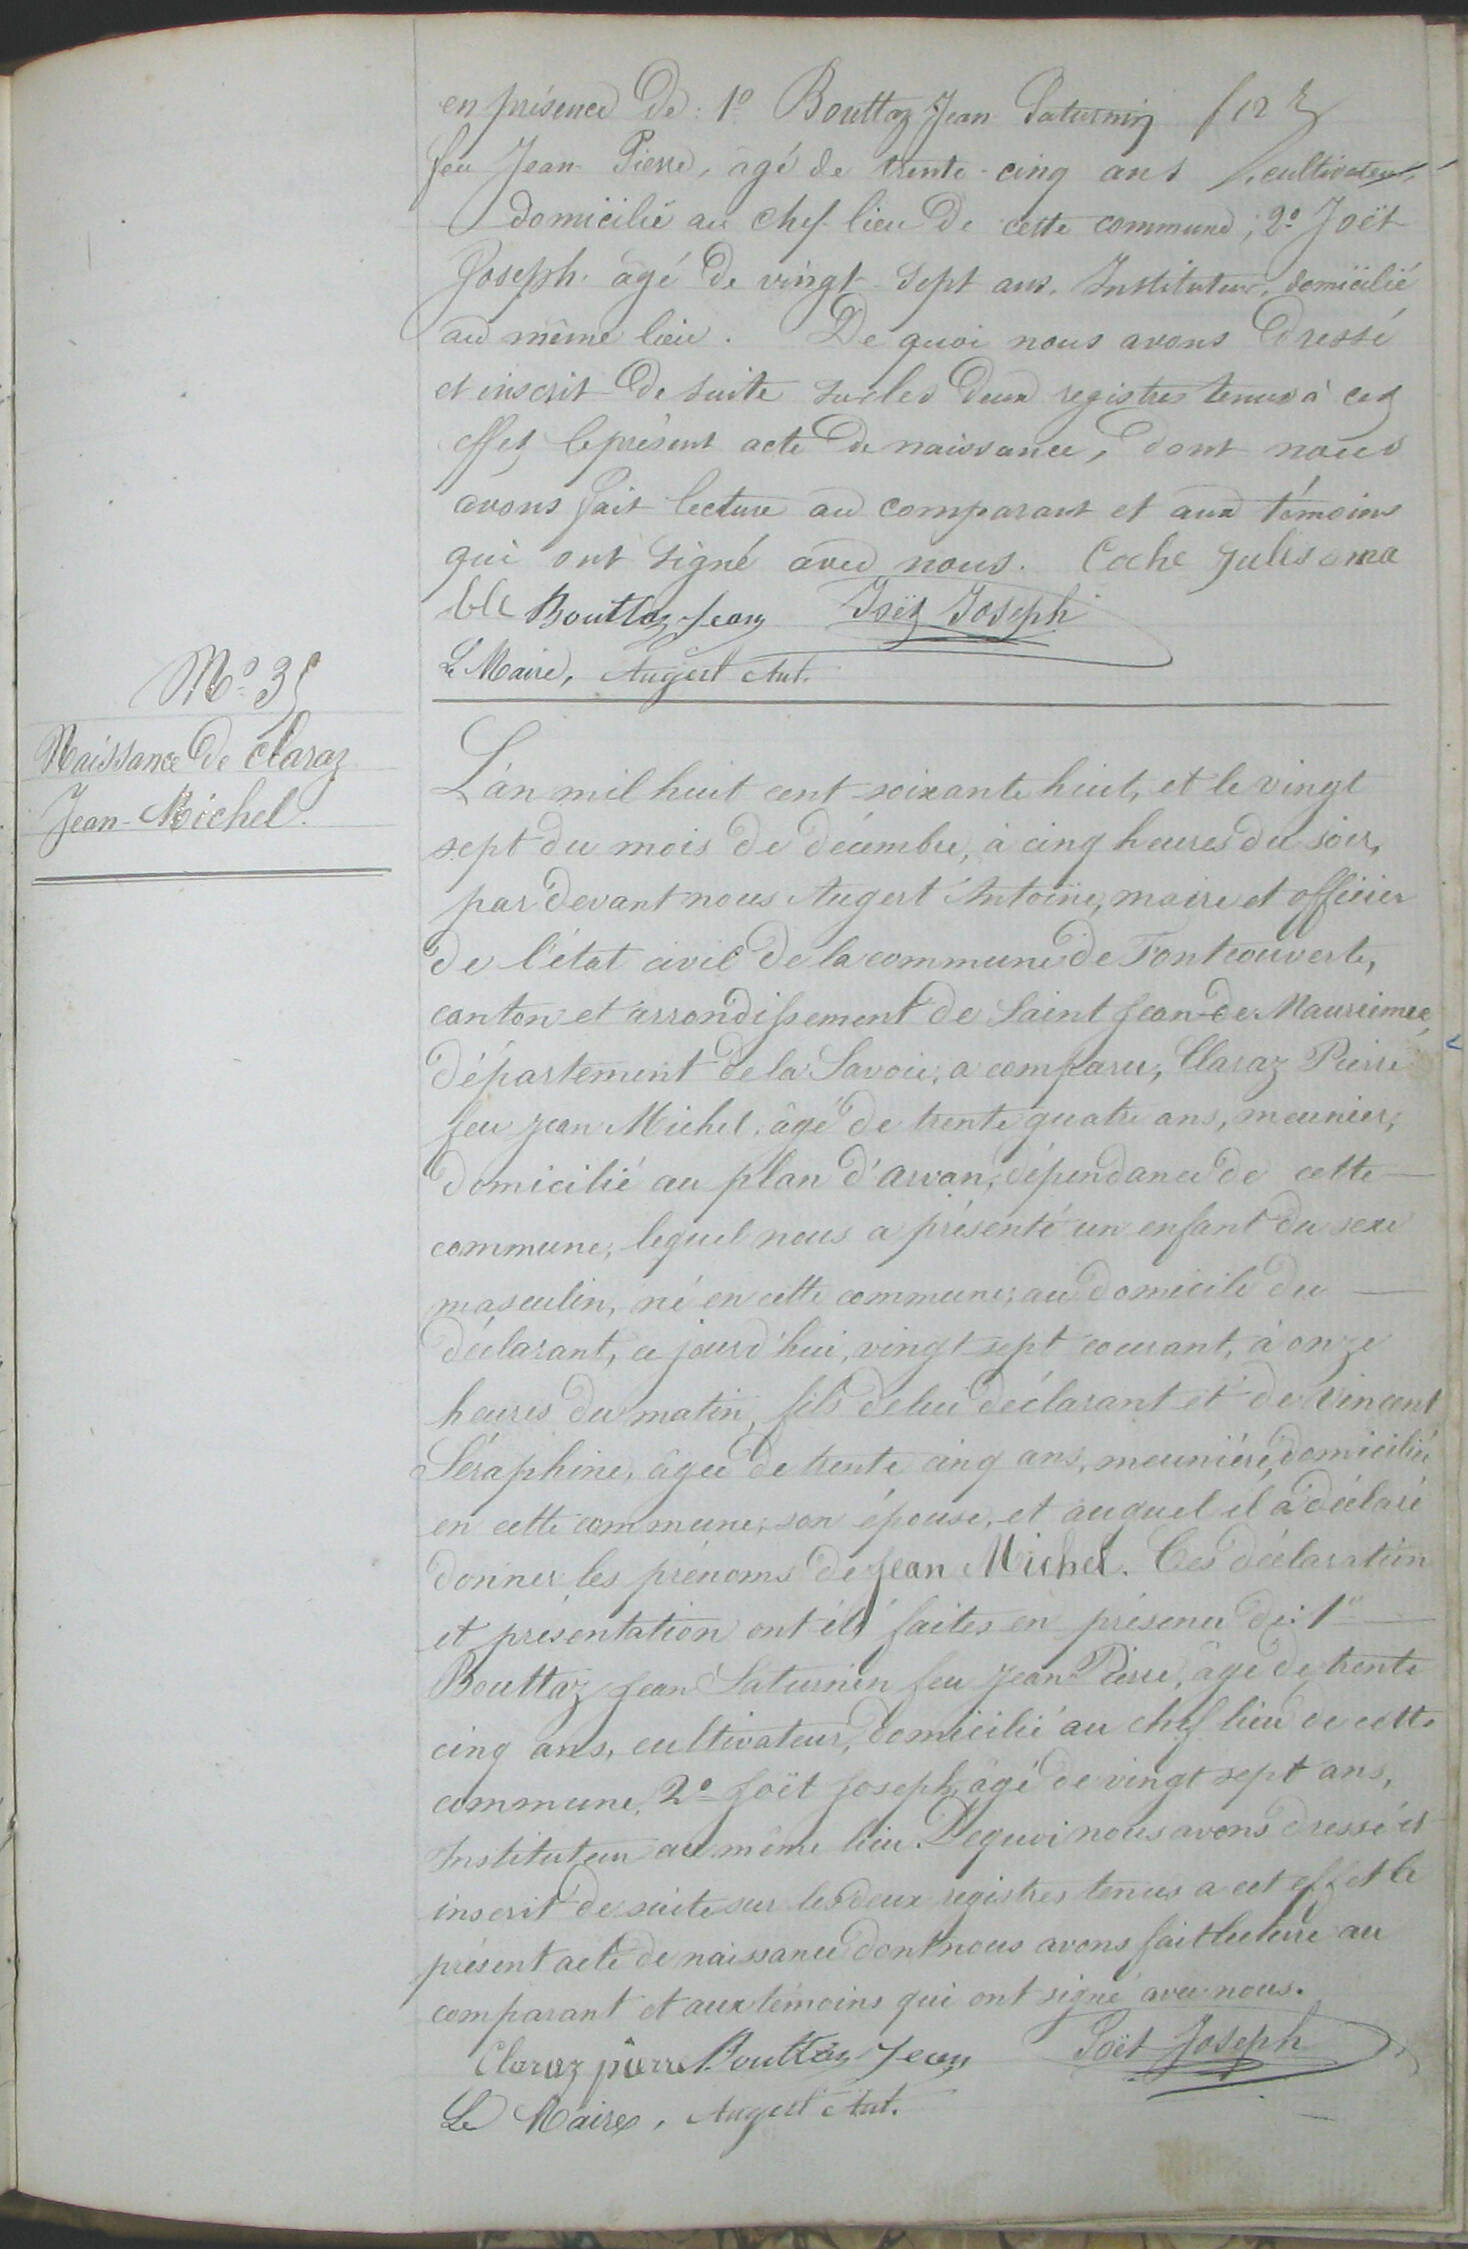 en présence de: 1º Bouttaz Jean Saturnin
feu Jean-Pierre, âgé de trente-cinq ans, cultivateur,
domicilié au chef-lieu de cette commune; 2º Joët
Joseph âgé de vingt-sept ans, Instituteur, domicilié
au même lieu. De quoi nous avons dressé
et inscrit de suite sur les deux registres tenus à cet
effet le présent acte de naissance, dont nous
avons fait lecture au comparant et aux témoins
qui ont signé avec nous. Coche Jules ama
ble Bouttaz Jean Joët Joseph
Le Maire, Augert Ant.
Nº 35
Naissance de Claraz
Jean-Michel.
L'an mil huit cent soixante huit, et le vingt
sept du mois de décembre, à cinq heures du soir,
par devant nous Augert Antoine, maire et officier
de l'état civil de la commune de Fontcouverte,
canton et arrondissement de Saint Jean-de-Maurienne,
département de la Savoie, a comparu, Claraz Pierre
feu Jean Michel, âgé de trente quatre ans, meunier,
domicilié au plan d'arvan, dépendance de cette
commune, lequel nous a présenté un enfant du sexe
masculin, né en cette commune, au domicile du
déclarant, ce jourd'hui, vingt sept courant, à onze
heures du matin, fils de lui déclarant et de Vincent
Séraphine, âgée de trente cinq ans, meunière, domiciliée
en cette commune, son épouse, et auquel il a déclaré
donner les prénoms de Jean Michel. Ces déclaration
et présentation ont été faites en présence de: 1º
Bouttaz Jean Saturnin feu Jean-Pierre, âgé de trente
cinq ans, cultivateur, domicilié au chef lieu de cette
commune, 2º Joët Joseph, âgé de vingt sept ans,
Instituteur au même lieu. De quoi nous avons dressé et
inscrit de suite sur les deux registres tenus a cet effet le
présent acte de naissance dont nous avons fait lecture au
comparant et aux témoins qui ont signé avec nous.
Claraz pierre Bouttaz Jean Joët Joseph
Le Maire, Augert Ant.